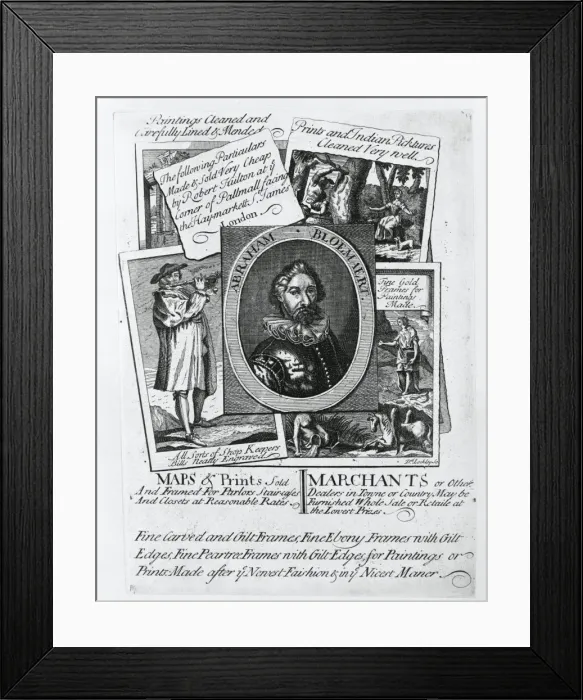 Paintings Cleaned and
Carefully Lined & Mended
Prints and Indian Picktures
Cleaned Very well
The following Particulars
Made & Sold Very Cheap
by Robert Fulton at ye
Corner of Pallmall facing
the Haymarkett St. James
London
ABRAHAM BLOEMAERT
Fine Gold
Frames for
Paintings
Made
All Sorts of Shop Keepers
Bills Neatly Engraved
MAPS & Prints Sold
And Framed For Parlors Staircases
And Closets at Reasonable Rates
MARCHANTS or Other
Dealers in Towne or Country May be
Furnished Whole Sale or Retaile at
the Lowest Prizes
Fine Carved and Gilt Frames, Fine Ebony Frames with Gilt
Edges, Fine Peartree Frames with Gilt Edges, for Paintings or
Prints Made after ye Newest Faishion & in ye Nicest Maner